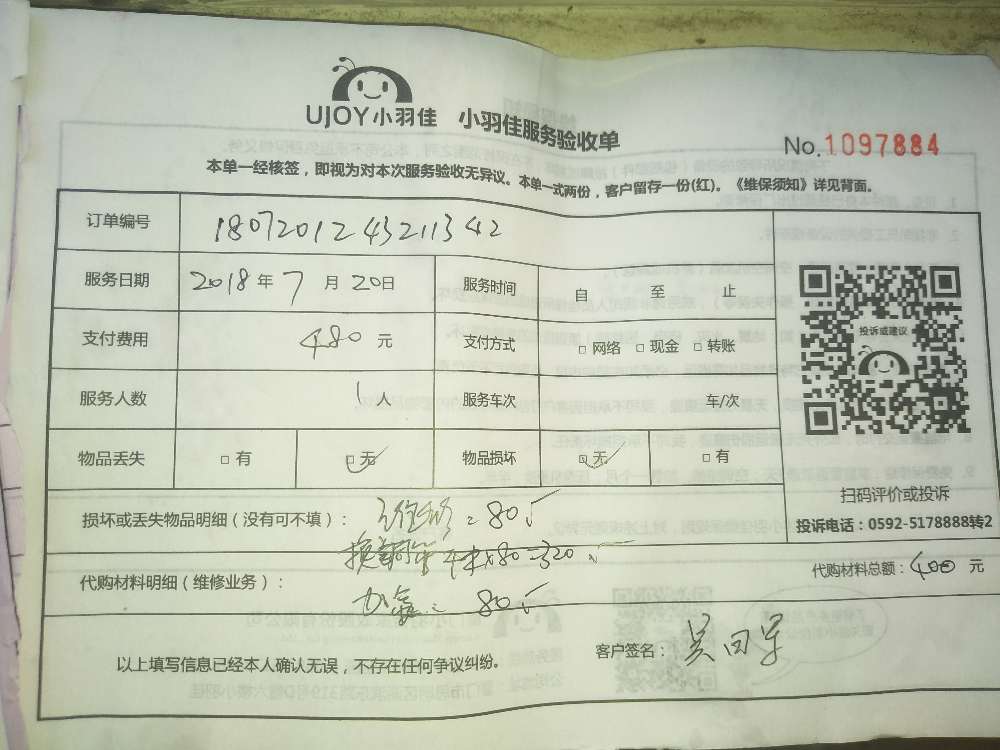 UJOY小羽佳 小羽佳服务验收单
No.1097884
本单一经核签，即视为对本次服务验收无异议。本单一式两份，客户留存一份(红)。《维保须知》详见背面。
订单编号 1807201243211342
服务日期 2018年7月20日 服务时间 自 至 止
支付费用 480元 支付方式 □网络 □现金 □转账
投诉或建议
服务人数 1人 服务车次 车/次
物品丢失 □有 □无 物品损坏 □无 □有
扫码评价或投诉
损坏或丢失物品明细（没有可不填）： =80
投诉电话：0592-5178888转2
换 ×80=320
代购材料明细（维修业务）： 80
代购材料总额：400元
以上填写信息已经本人确认无误，不存在任何争议纠纷。 客户签名：吴田